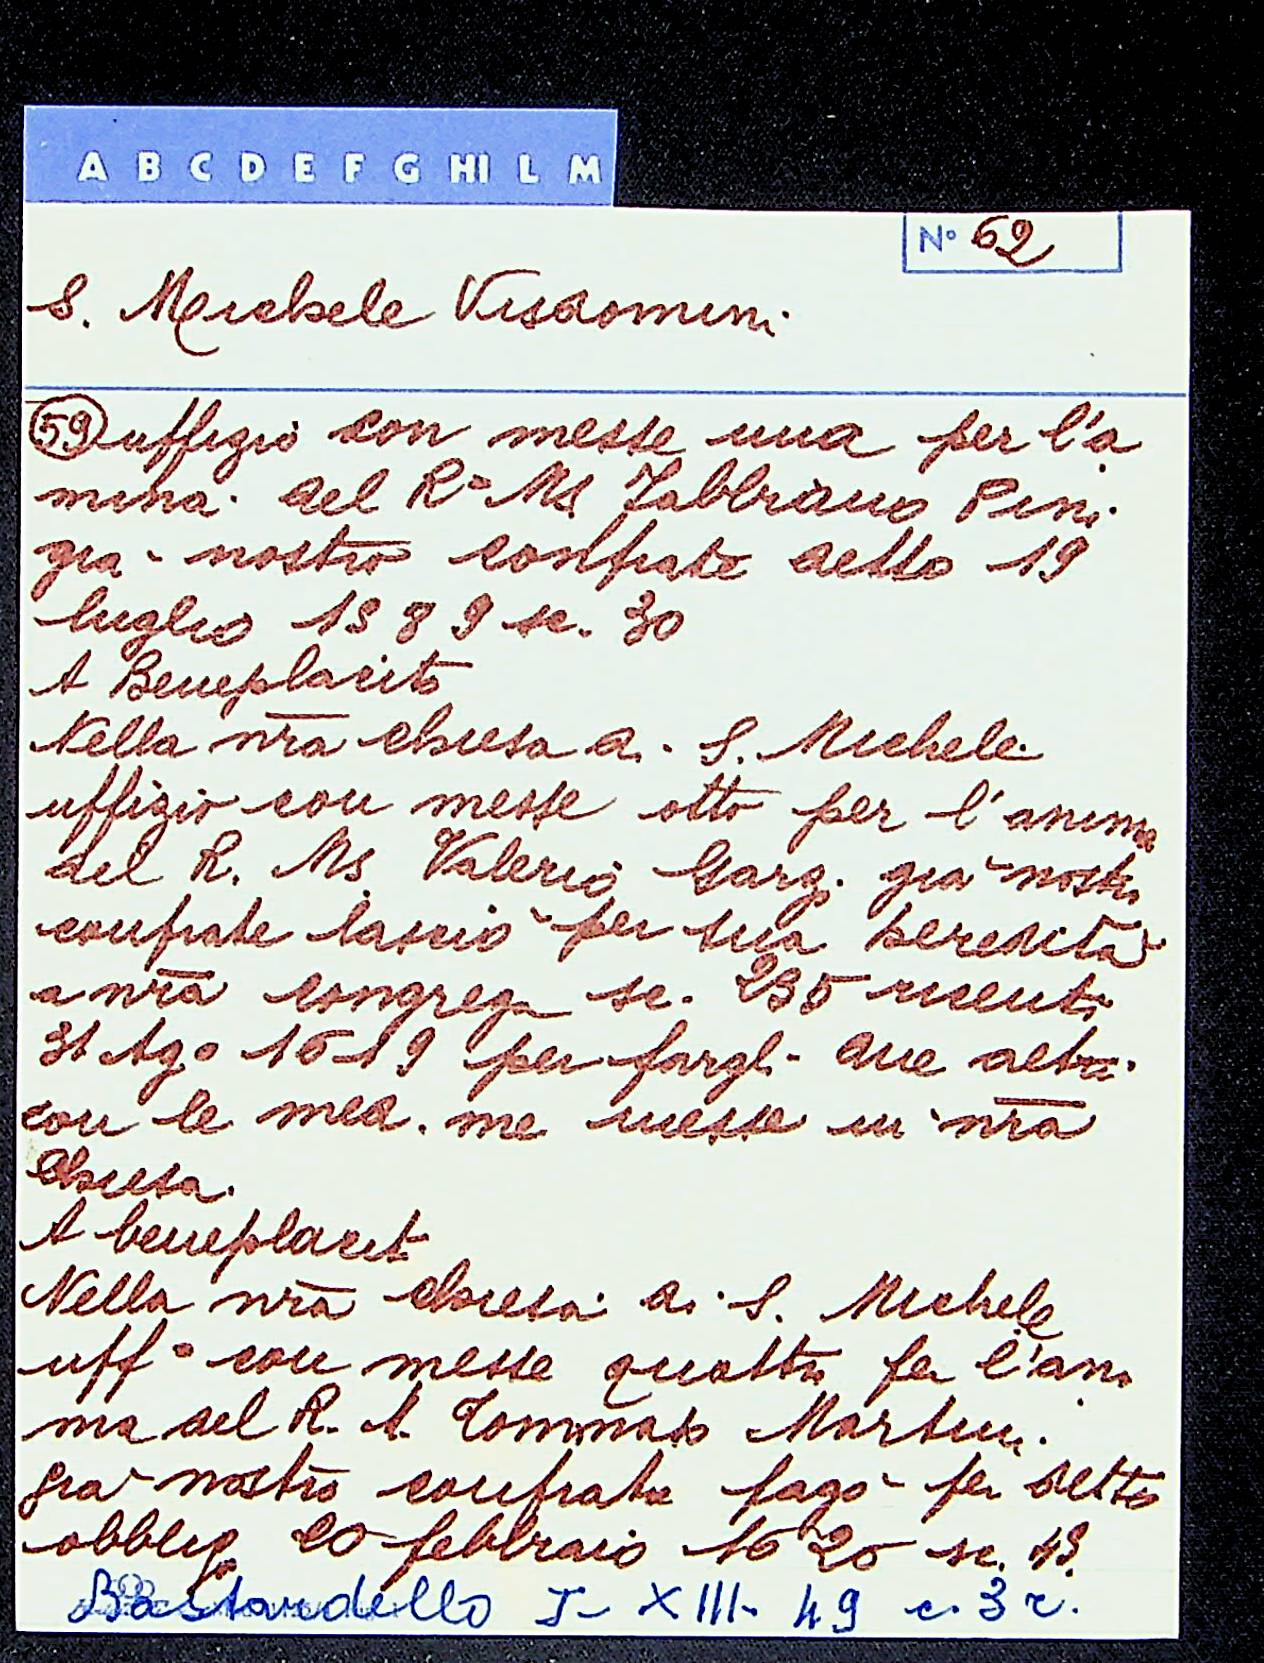 A B C D E F G HI L M
N° 62
S. Michele Visdomini
59 uffizio con messe una per l'a
nima del R° Ms Fabbriano Pini
già nostro confrate detto 19
luglio 1589 sc. 30
A Beneplacito
Nella nra chiesa di S. Michele
uffizio con messe otto per l'anima
del R. Ms Valerio Garg. già nostro
confrate lasciò per sua heredità
a nra congreg sc. 235
31 Ago 1619 per fargli dire detto
con le med.me messe in nra
chiesa.
A beneplacito
Nella nra chiesa di S. Michele
uff° con messe quattro per l'ani
ma del R. A. Tommaso Martini
già nostro confrate pagò per detto
obblig° 20 febbraio 1620 sc. 45.
Bastardello I- XIII- 49 c. 3 r.